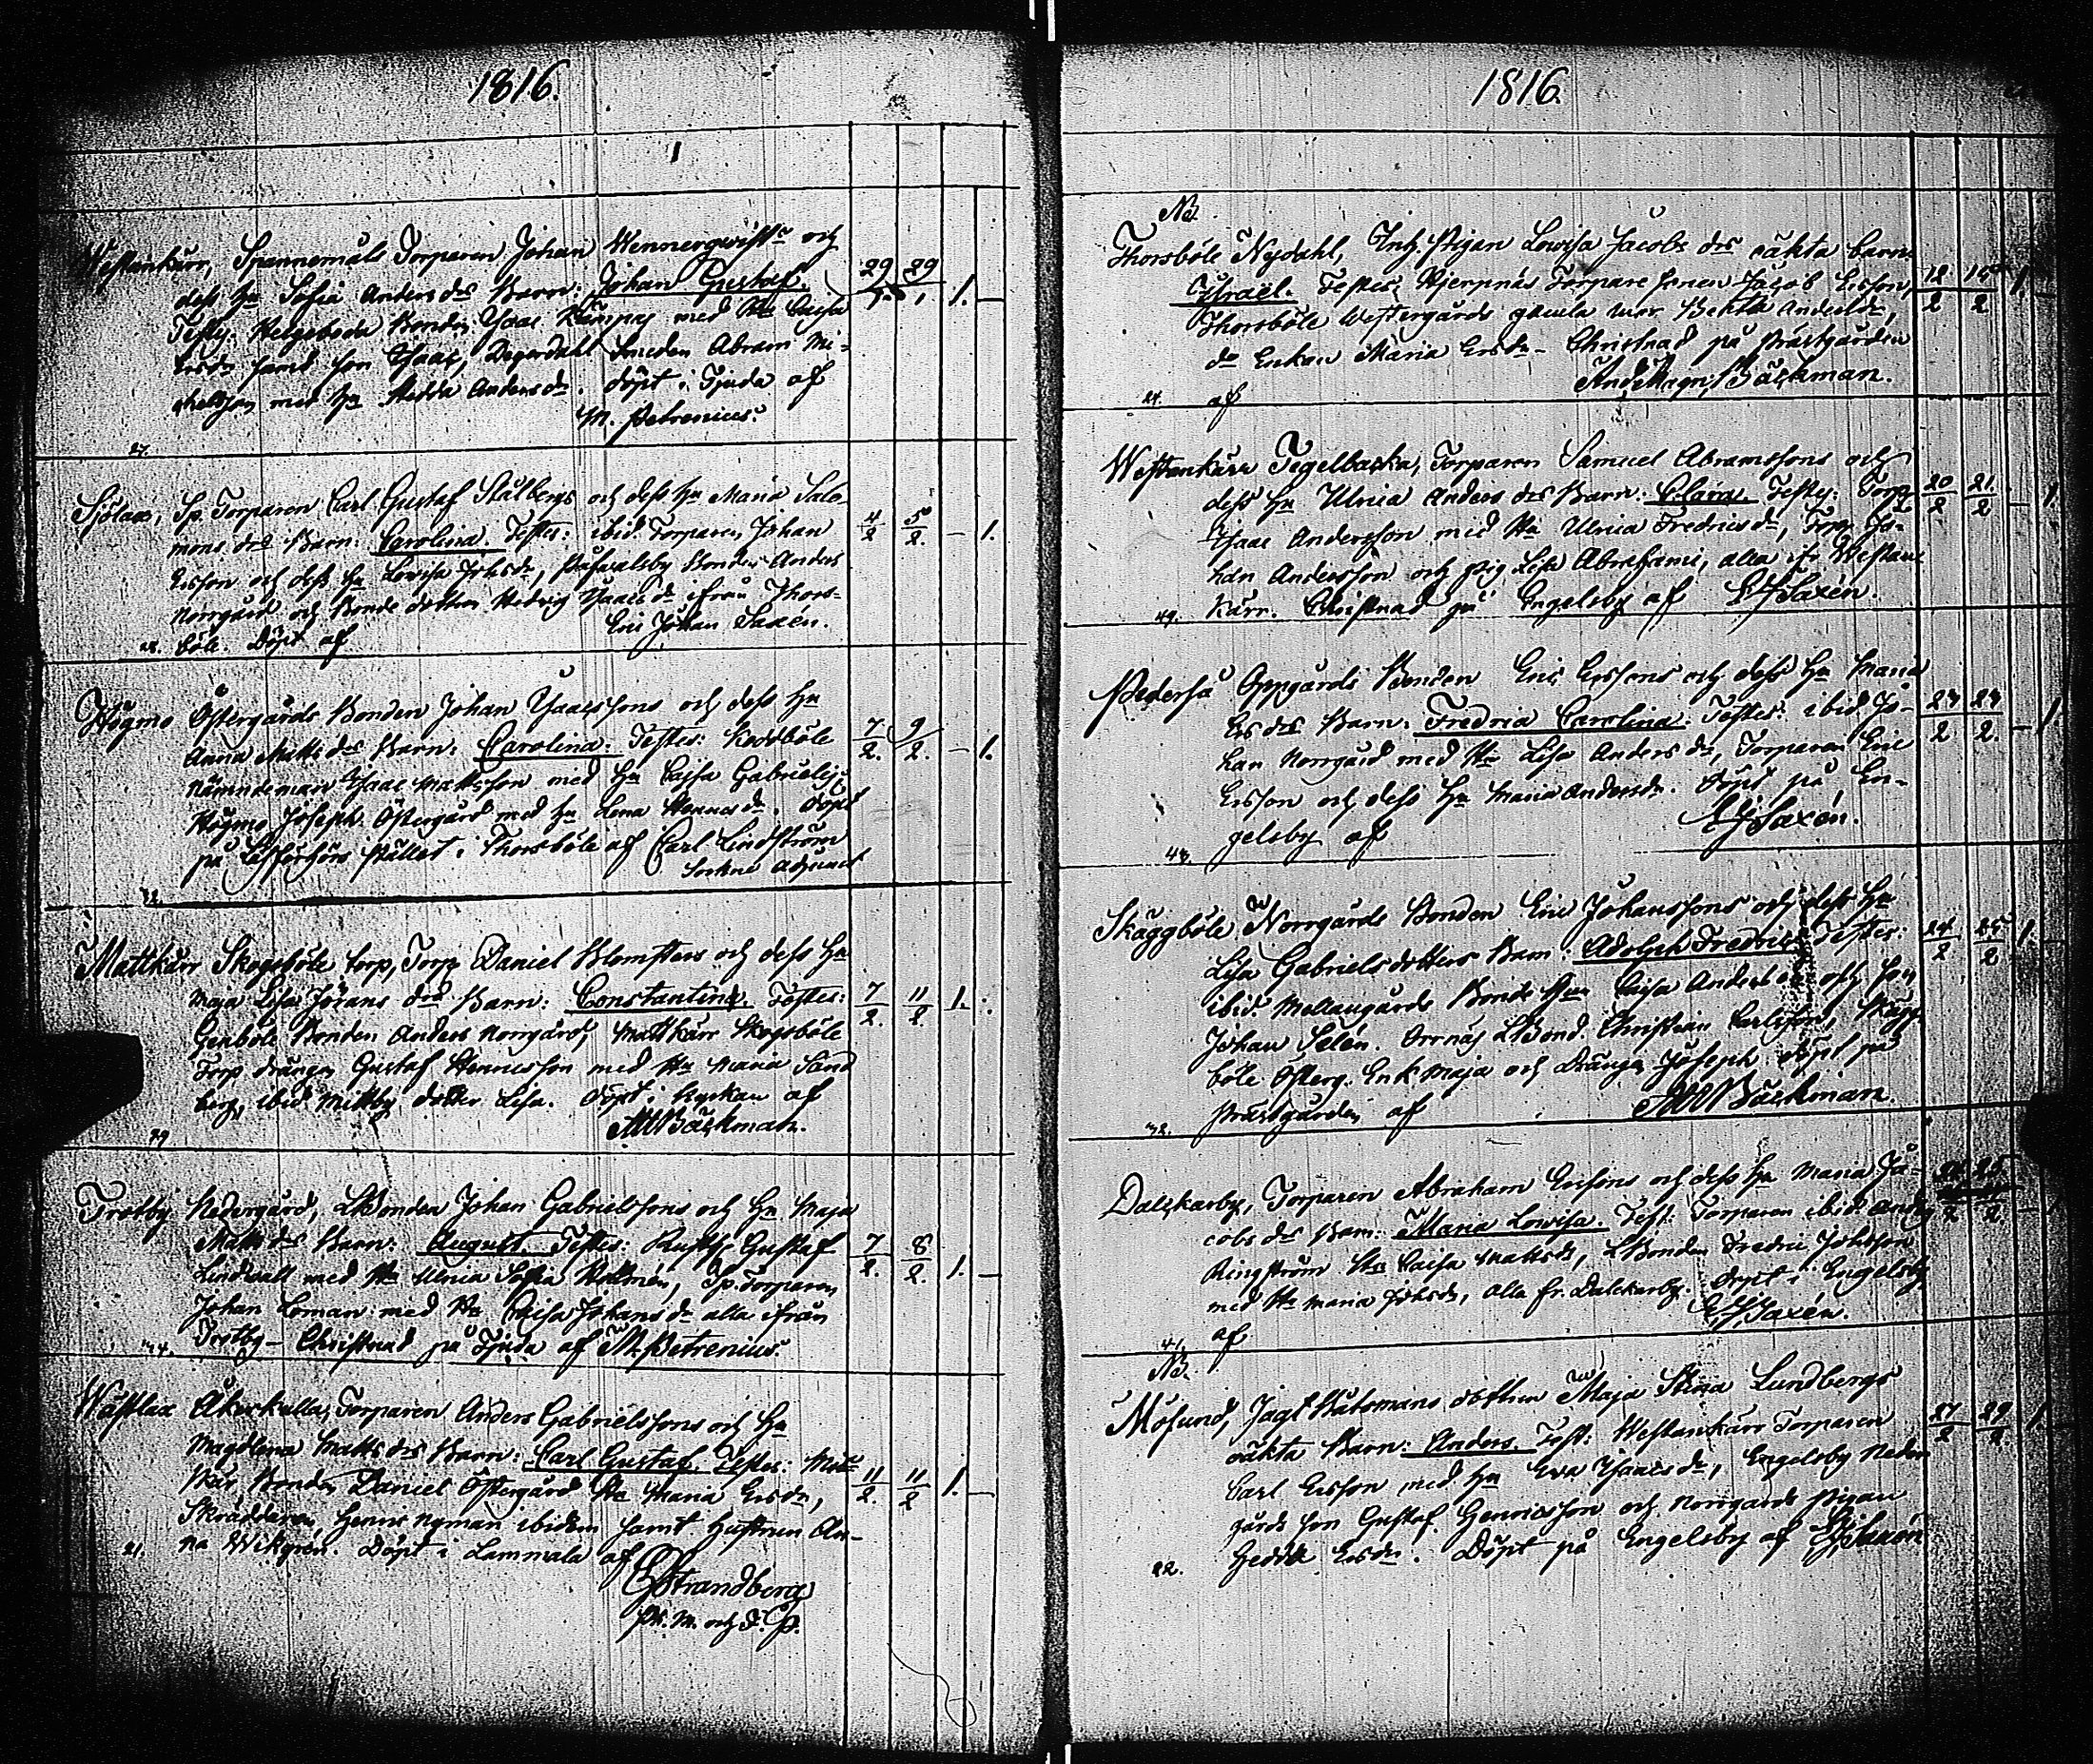 1816.
Westankärr, Spennemåls Torparen Johan Wennerqwists och
dess hu Sofia Anders drs Barn: Johan Gustaf. 29/1. 29/1 1. –
Testes: Helgeboda Bonden Isaac Kämpas med Hu Caisa
Ersdr samt son Isaac, Degerdahl Smeden Abram Mi-
chelsson med hu Hedda Andersdr. döpt i Tjuda af
M. Petrenius.
27.
Sjölax, Sp. Torparen Carl Gustaf Stålbergs och dess hu Maria Salo-
mons drs Barn: Carolina. Testes: ibid. Torparen Johan 4/2 5/2. – 1.
Ersson och dess hu Lovisa Johsdr, Påfvalsby Bonden Anders
Norrgård och Bonde dottren Hedvig Isaacs dr ifrån Thors-
böle. Döpt af Eric Johan Saxén.
28.
Högmo Östergårds Bonden Johan Isaacssons och dess hu
Anna Matts drs Barn: Carolina. Testes: Reddböle 7/2. 9/2. – 1.
Nämndeman Isaac Mattsson med hu Caisa Gabrielsdr,
Högmo Joseph Östergård med hu Lena Henricsdr. döpt
på Läsförhörs stället i Thorsböle af Carl Lindström
Sockne adjunct
32.
Mattkärr Skogsböle torp, Torp Daniel Blomsters och dess hu
Maja Lisa Jörans drs Barn: Constantin. Testes: 7/2. 11/2. 1.
Genböle Bonden Anders Norrgård, Mattkärr Skogsböle
Torp drängen Gustaf Henricsson med Hu Maria Sand
berg, ibid Mittby dotter Lisa. döpt i kyrkan af
AMBäckman.
39
Trotby Nedergård, LBonden Johan Gabrielssons och hu Maja
Matts drs Barn: August. Testes: Gustaf 7/2. 8/2. 1. –
Lindwall med Hu Ulrica Sofia Holmén, Sp. Torparen
Johan Loman med Hu Caisa Johans dr alla ifrån
Trotby – Christnad på Tjuda af M. Petrenius.
34.
Wästlax Åkerkulla, Torparen Anders Gabrielssons och hu
Magdlena Matts drs Barn: Carl Gustaf. Testes:
Bonden Daniel Östergård Hu Maria Ersdr, 11/2. 11/2 1. –
Skräddaren Henric Nyman ibidem samt hustrun An-
na Wikgren. Döpt i Lammala af
21.
GStrandberg
Ph. M. och d. P.
1816.
NB.
Thorsböle Nydahl, Inh. Pigan Lowisa Jacobs drs oäkta barn
Israel. Testes: Hjerpnäs Torpare sonen Jacob Ersson, 12/2 15/2 1.
Thorsböle Westergårds gamla mor Beata Andersdr,
do Enkan Maria Ersdr – Christnad på Prästgården
af And. Magn. Bäckman.
24.
Westankärr Tegelbacka, Torparen Samuel Abramssons och
dess hu Ulrica Anders drs Barn: Clara. Testes: Torp 20/2 21/2 – 1.
Isaac Andersson med Hu Ulrica Fredricsdr, Torp Jo-
han Andersson och pig Lisa Abrahami, alla ifr Westan-
kärr. Christnad på Engelsby af EJSaxén.
49.
Pederså Oppgårds Bonden Eric Erssons och dess hu Maria
Ers drs Barn: Fredrica Carolina. Testes: ibid. Jo- 23/2 24/2. – 1.
han Norrgård med Hu Lisa Anders dr, Torparen Eric
Ersson och dess hu Maria Andersdr. döpt på En-
gelsby af EJSaxén.
43.
Skäggböle Norrgårds Bonden Eric Johanssons och dess hu
Lisa Gabrielsdotters Barn: Adolph Fredric. Testes: 24/2 25/2 1.
ibid. Mellangårds Bonde Caisa och son
Johan Selén. Orrnäs LBond. Christian Carlsson, Skägg-
böle Österg. Enk Maja och Drängen Joseph döpt på
prästgården af AMBäckman.
32.
Dalskarby, Torparen Abraham Ersons och dess hu Maria Ja-
cobs dr Barn: Maria Lowisa. Test: Torparen ibid: Anders
Ringström Hu Caisa Mattsdr, LBonden Fredric Johsson
med Hu Maria Johsdr, alla fr. Dalskarby. Döpt i Engelsby
af EJSaxén.
41.
NB.
Mosund, Jagt Båtsmans dottren Maja Stina Lundbergs
oäkta Barn: Anders. Test: Westankärr Torparen 27/2 29/2. 1.
Carl Ersson med hu Eva Isaacs dr, Engelsby Neder
gårds son Gustaf Henricsson och Norrgårds pigan
Hedda Ersdr. Döpt på Engelsby af EJSaxén
22.